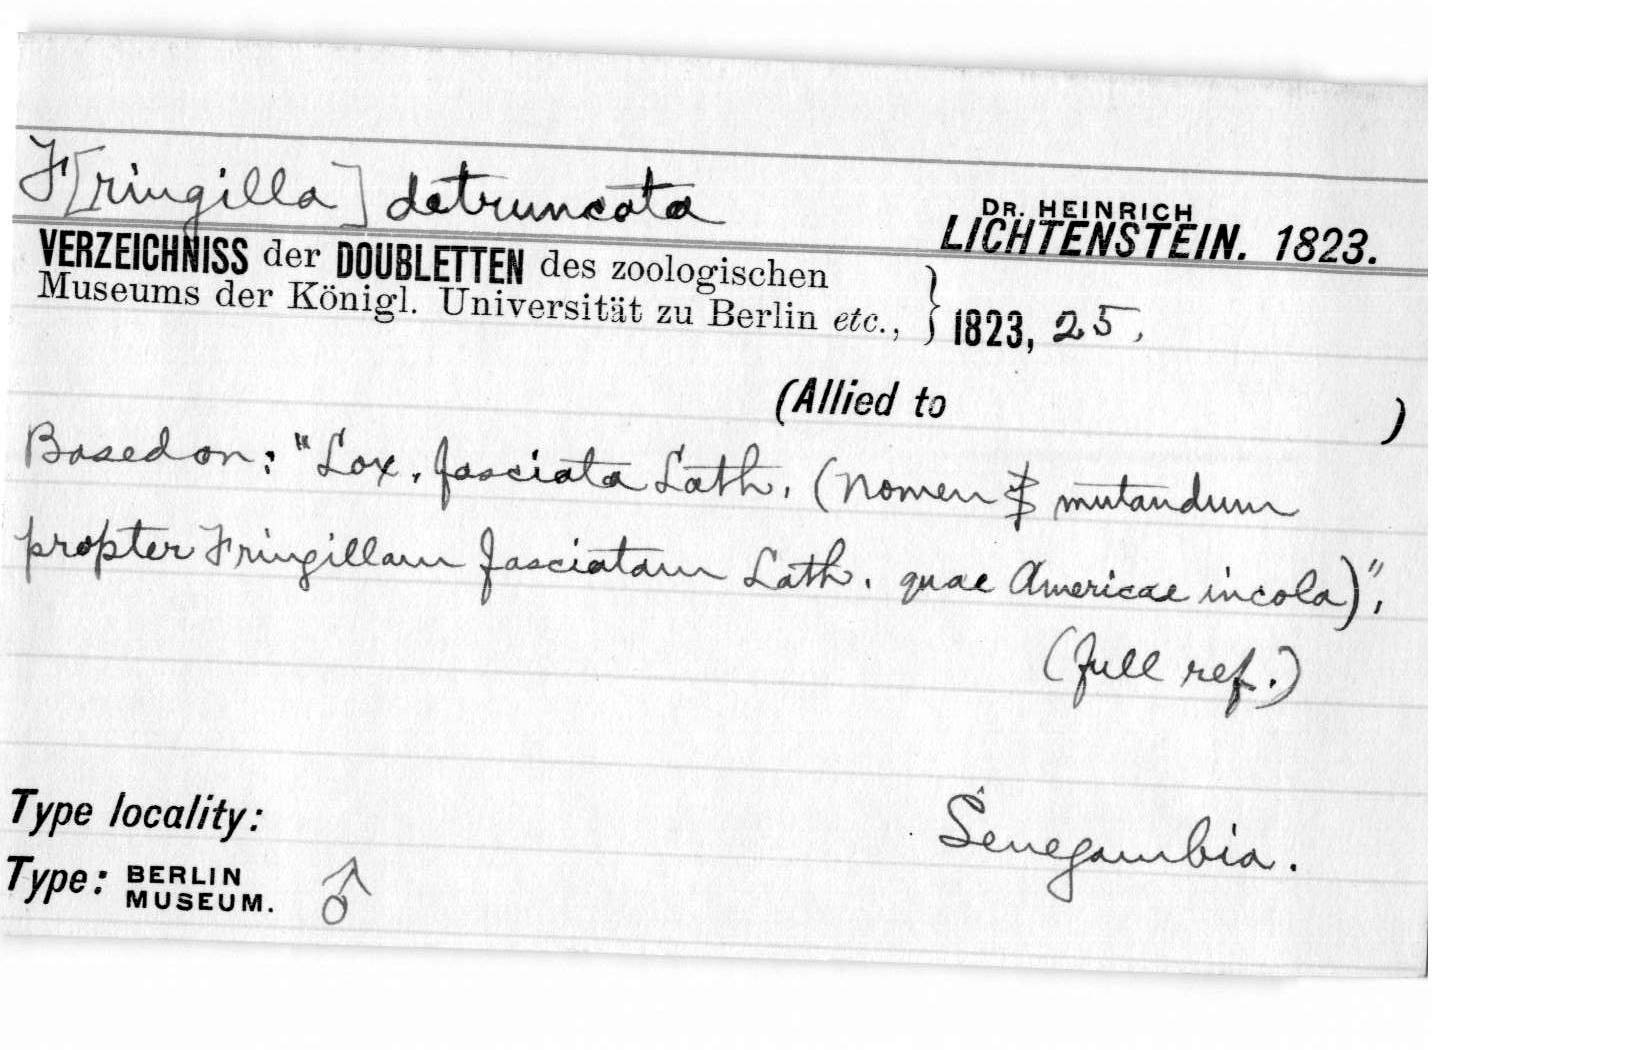 F[ringilla] detruncata
DR. HEINRICH
LICHTENSTEIN. 1823.
VERZEICHNISS der DOUBLETTEN des zoologischen
Museums der Königl. Universität zu Berlin etc., } 1823, 25,
(Allied to )
Based on: "Lox. fasciata Lath. (nomen mutandum
propter Fringillam fasciatam Lath. quae Americae incola)",
(full ref.)
Type locality: Senegambia.
Type: BERLIN
MUSEUM. ♂